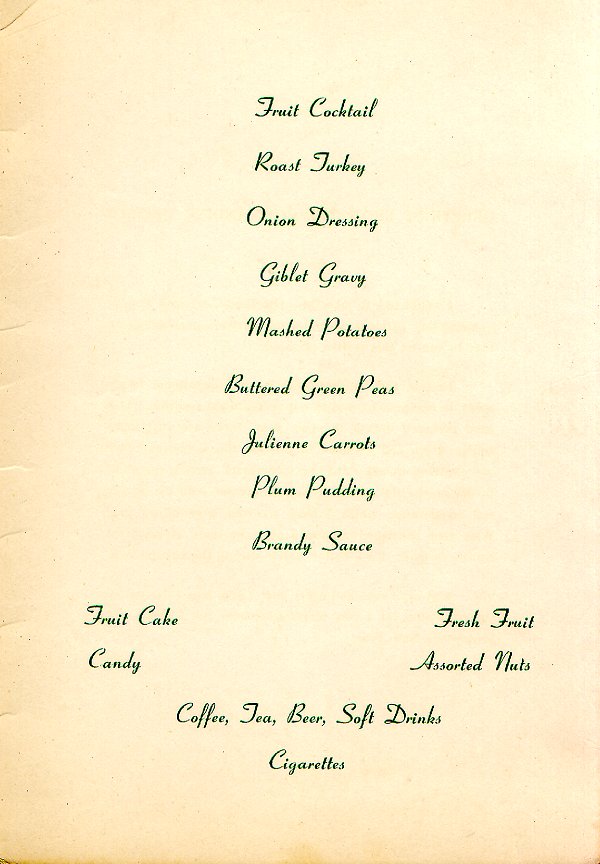 Fruit Cocktail
Roast Turkey
Onion Dressing
Giblet Gravy
Mashed Potatoes
Buttered Green Peas
Julienne Carrots
Plum Pudding
Brandy Sauce
Fruit Cake Fresh Fruit
Candy Assorted Nuts
Coffee, Tea, Beer, Soft Drinks
Cigarettes